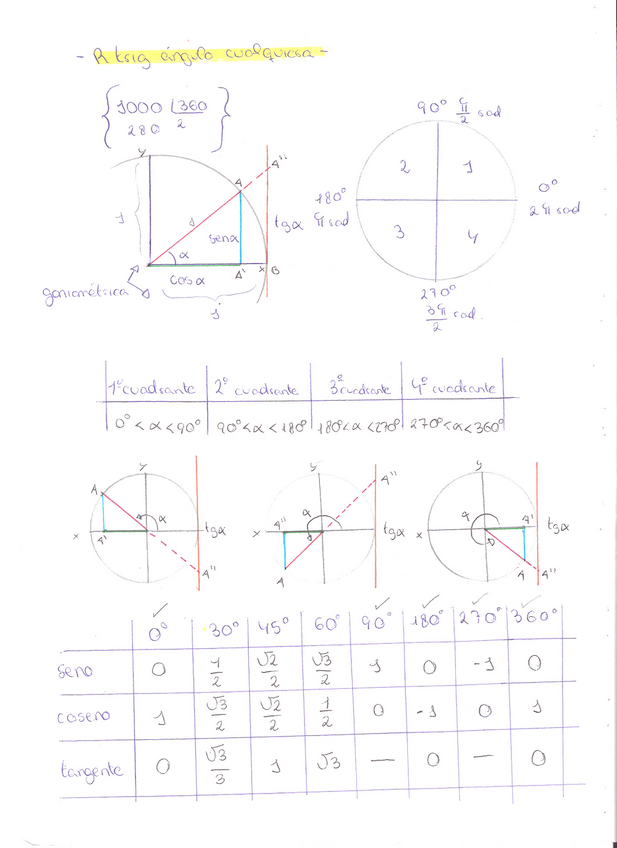 - R trig ángulo cualquiera -
1000 360
280 2
90° π/2 rad
2 1
180° π rad
0° 2π rad
3 4
270° 3π/2 rad.
y A A"
1 1 sen α tg α
α
cos α A' x B
goniométrica
1
1º cuadrante 2º cuadrante 3º cuadrante 4º cuadrante
0° < α < 90° 90° < α < 180° 180° < α < 270° 270° < α < 360°
y A α x A' tg α A"
y A" α x A" tg α A
y α A' x tg α A A"
0° 30° 45° 60° 90° 180° 270° 360°
seno 0 1/2 √2/2 √3/2 1 0 -1 0
coseno 1 √3/2 √2/2 1/2 0 -1 0 1
tangente 0 √3/3 1 √3 — 0 — 0